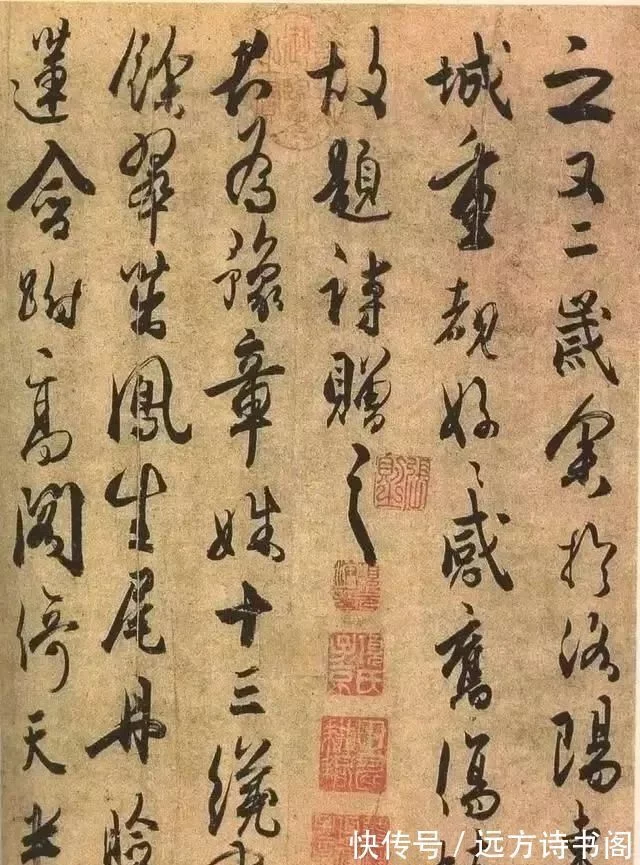 之又二歲余於洛陽東
城重覩好〻感舊傷
故題詩贈之
君為豫章姝十三纔有
餘翠茁鳳生尾丹臉
蓮含跗高閣倚天半
快传号 / 远方诗书阁